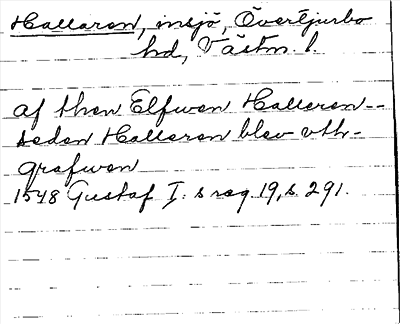 Hallaren, insjö, Övertjurbo
hd, Västm. l.
af then Elfwen Hallaren--
sedan Hallaren blev vth-
grafwen
1548 Gustaf I: s reg. 19, s. 291.